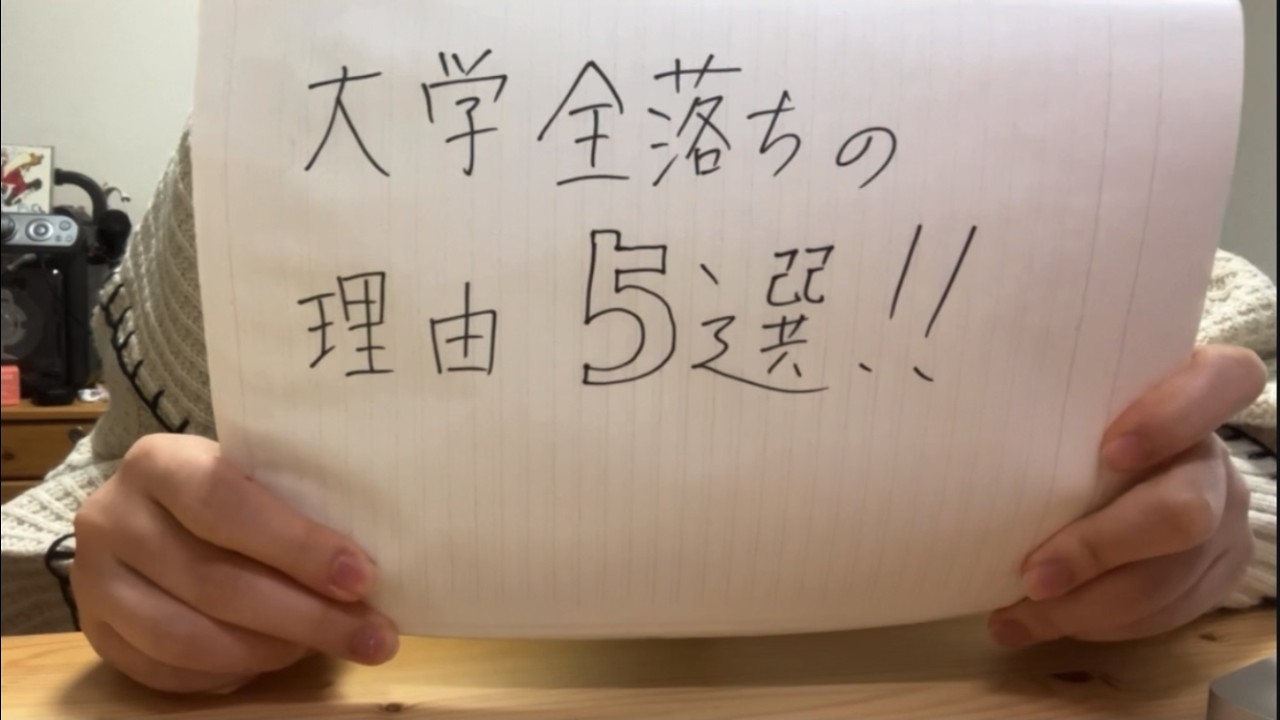 大学全落ちの
理由5選!!